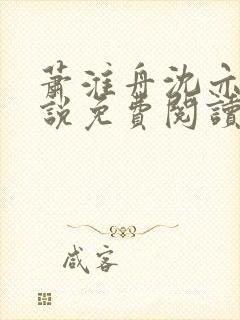 蕭淮舟沈亦
說免費閱讀
咸客